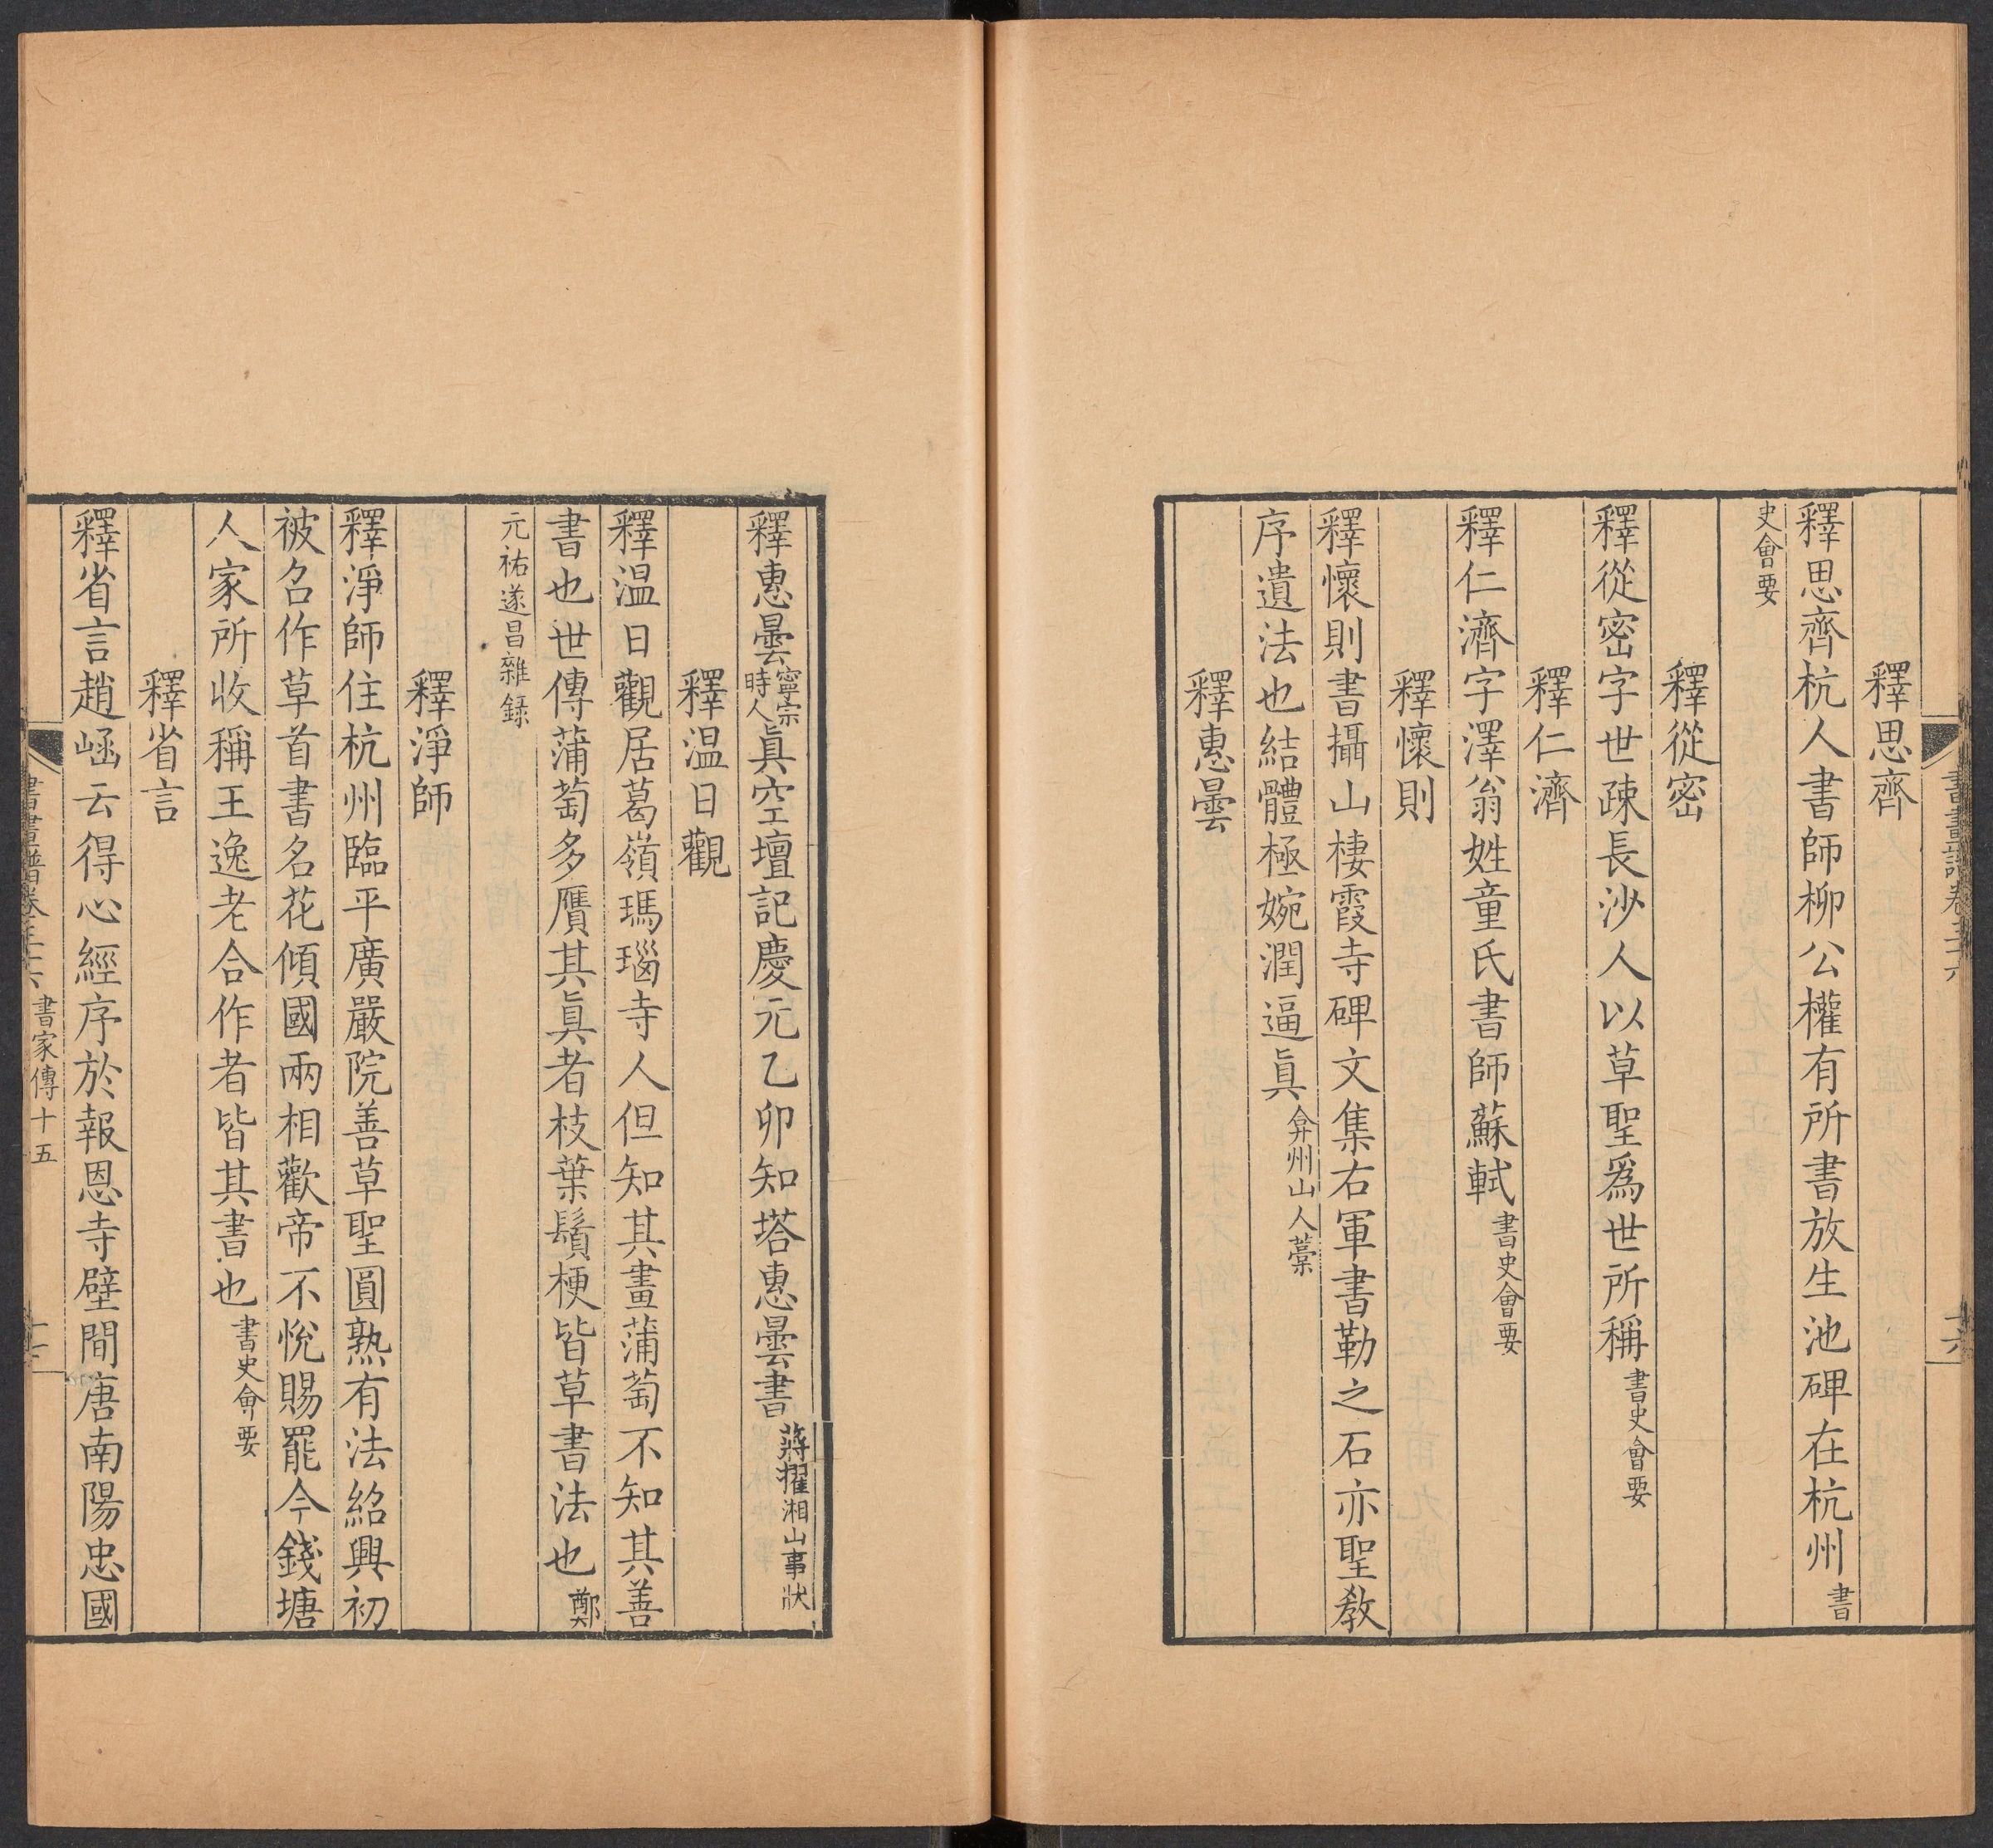 釋思齊
釋思齊杭人書師柳公權有所書放生池碑在杭州書
史會要
釋從密
釋從密字世疎長沙人以草聖爲世所稱書史會要
釋仁濟
釋仁濟字澤翁姓童氏書師蘇軾書史會要
釋懷則
釋懷則書攝山棲霞寺碑文集右軍書勒之石亦聖教
序遺法也結體極婉潤逼眞弇州山人藁
釋惠曇
釋惠曇寧宗時人眞空壇記慶元乙卯知塔惠曇書蔣擢湘山事狀
釋温日觀
釋温日觀居葛嶺瑪瑙寺人但知其畫蒲萄不知其善
書也世傳蒲萄多贋其眞者枝葉鬚梗皆草書法也鄭
元祐遂昌雜録
釋淨師
釋淨師住杭州臨平廣嚴院善草聖圓熟有法紹興初
被召作草首書名花傾國兩相歡帝不悅賜罷今錢塘
人家所收稱王逸老合作者皆其書也書史會要
釋省言
釋省言趙崡云得心經序於報恩寺壁間唐南陽忠國
書畫譜卷三十六 書家傳十五